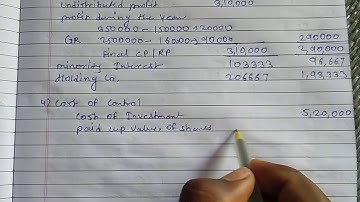 undistributed profit 3,10,000
profit during the year
350000 - 150000 + 20000
GR 2500000 - 160000 + 90000 290000
Final CP | RP 3,10,000 2,90,000
minority Interest 103333 96,667
Holding Co. 206667 1,93,333
4) Cost of Control
Cost of Investment 5,20,000
paid up value of shares